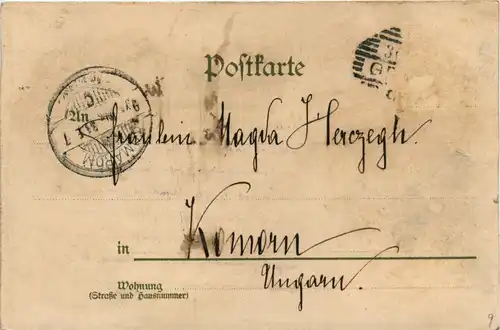 Postkarte
Fräulein Magda Herczegh.
in Komorn
Ungarn.
Wohnung
(Straße und Hausnummer)
9